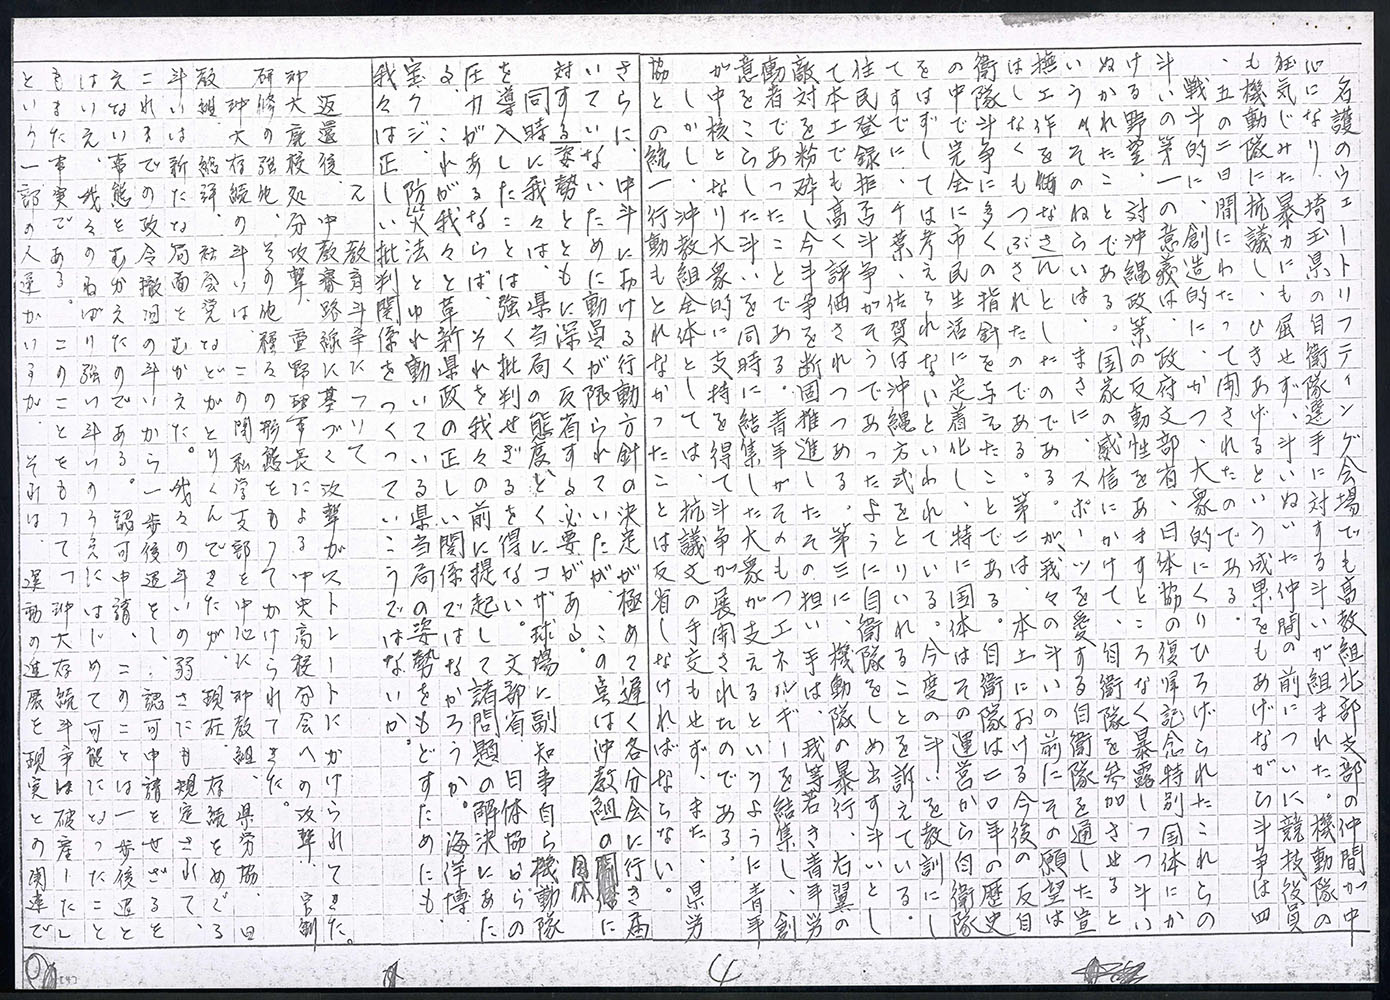 名護のウェートリフティング会場でも高教組北部支部の仲間が中
心になり、埼玉県の自衛隊選手に対する斗いが組まれた。機動隊の
狂気じみた暴力にも屈せず、斗いぬいた仲間の前についに競技役員
も機動隊に抗議し、ひきあげるという成果をもあげながら斗争は四
、五の二日間にわたって闭されたのである。
戦斗的に、創造的に、かつ、大衆的にくりひろげられたこれらの
斗いの第一の意義は、政府文部省、日体協の復帰記念特別国体にか
ける野望、対沖縄政策の反動性をあますところなく暴露しつつ斗い
ぬかれたことである。国家の威信にかけて、自衛隊を参加させると
いう々そのねらいは、まさに、スポーツを愛する自衛隊を通した宣
撫工作を価なさんとしたのである。が、我々の斗いの前にその願望は
はしなくもつぶされたのである。第二は、本土における今後の反自
衛隊斗争に多くの指針を与えたことである。自衛隊は二〇年の歴史
の中で完全に市民生活に定着化し、特に国体はその運営から自衛隊
をはずしては考えられないといわれている。今度の斗いを教訓にし
てすでに、千葉、佐賀は沖縄方式をとりいれることを訴えている。
住民登録拒否斗争がそうであったように自衛隊をしめ出す斗いとし
て本土でも高く評価されつつある。第三に、機動隊の暴行、右翼の
敵対を粉砕し今斗争を断固推進したその担い手は、我等若き青年労
働者であったことである。青年がそのもつエネルギーを結集し、創
意をこらした斗いを同時に結集した大衆が支えるというように青年
が中核となり大衆的に支持を得て斗争が展開されたのである。
しかし、沖教組全体としては、抗議文の手交もせず、また、県労
協との統一行動もとれなかったことは反省しなければならない。
さらに、中斗における行動方針の決定が極めて遅く各分会に行き届
いていないために動員が限られていたが、この点は沖教組の
国体
に
対する姿勢とともに深く反省する必要がある。
同時に我々は、県当局の態度とくにコザ球場に副知事自ら機動隊
を導入したことは強く批判せざるを得ない。文部省、日体協からの
圧力があるならば、それを我々の前に提起して諸問題の解決にあた
る、これが我々と革新県政の正しい関係ではなかろうか。海洋博、
宝クジ、防災法とゆれ動いている県当局の姿勢をもどすためにも、
我々は正しい批判関係をつくっていこうではないか。
え 教育斗争について
返還後、中教審路線に基づく攻撃がストレートにかけられてきた。
沖大廃校処分攻撃、重野理事長による中央高校分会への攻撃、官制
研修の強化、その他種々の形態をもってかけられてきた。
沖大存続の斗いは、この間私学支部を中心に沖教組、県労協、日
教組、総評、社会党などがとりくんできたが、現在、存続をめぐる
斗いは新たな局面をむかえた。我々の斗いの弱さにも規定されて、
これまでの政令撤回の斗いから一歩後退をし、認可申請をせざるを
えない事態をむかえたのである。認可申請、このことは一歩後退と
はいえ、我々のねばり強い斗いのうえにはじめて可能になったこと
もまた事実である。このことをもって、沖大存続斗争は破産したと
という一部の人達がいるが、それは、運動の進展を現実との関連で
4